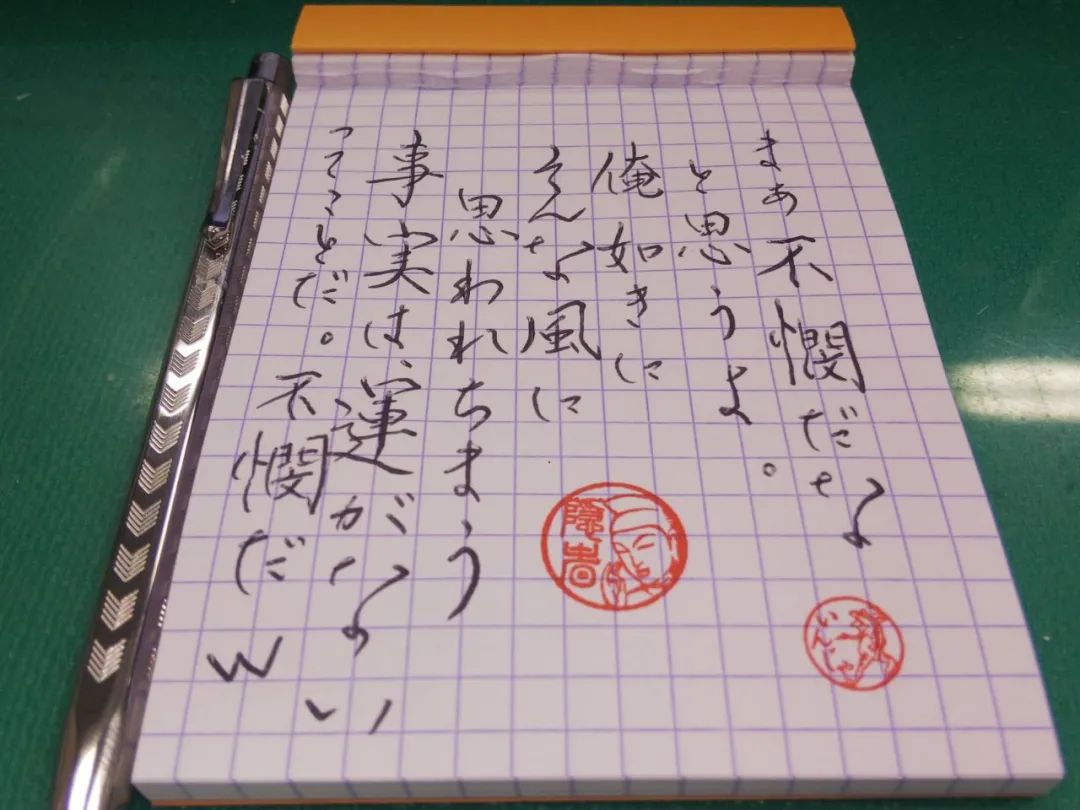 まあ不憫だな
と思うよ。
俺如きに
そんな風に
思われちまう
事実は、運がない
ってことだ。不憫だw
隠者
いんじゃ